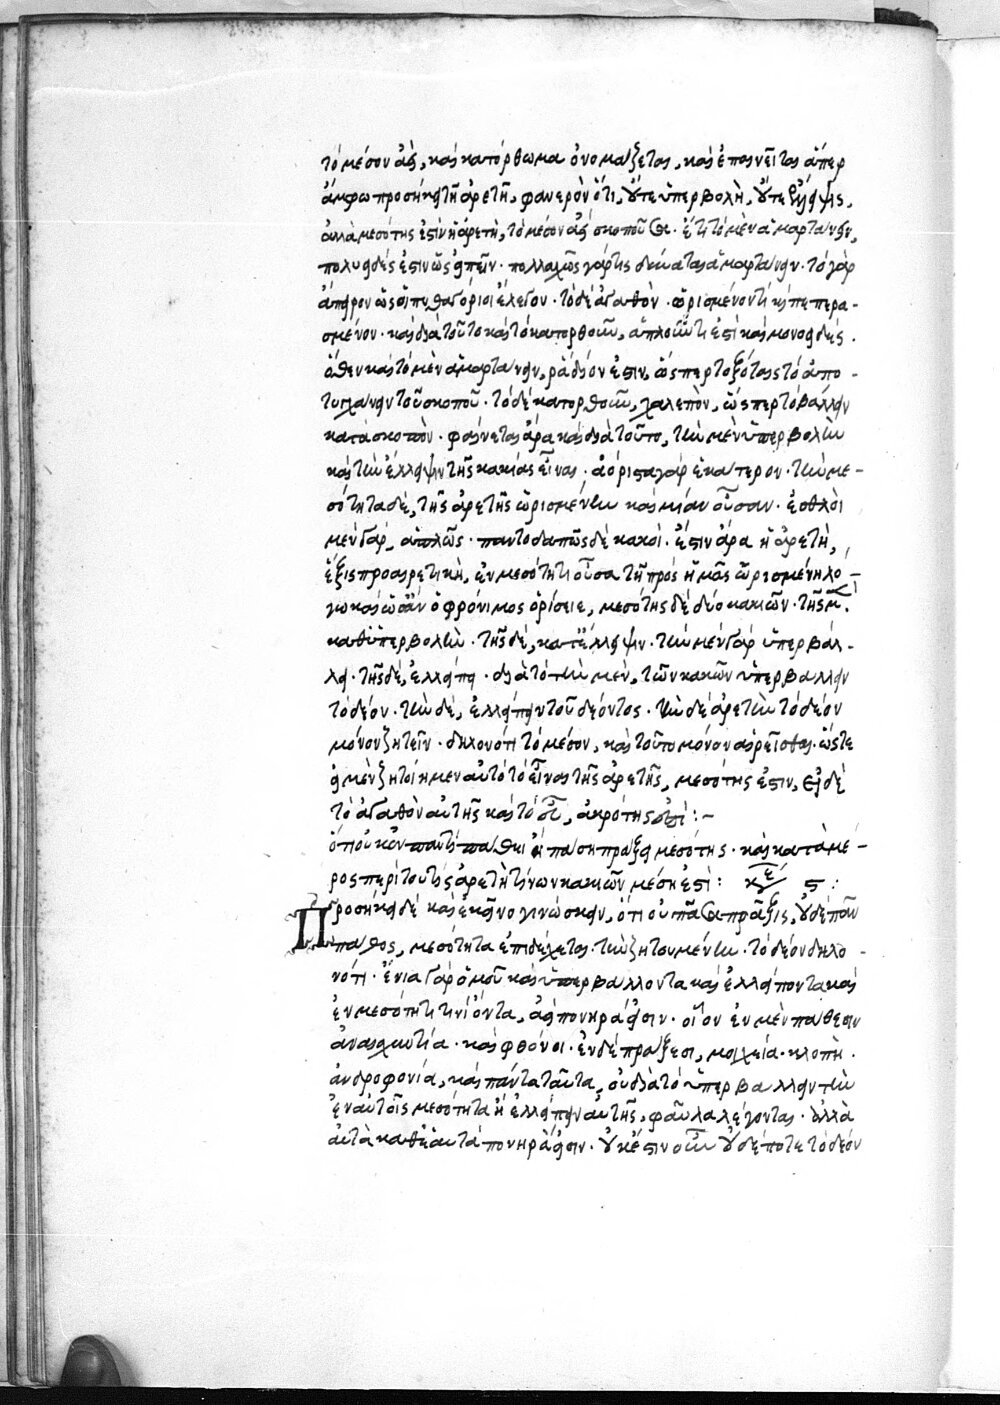 τὸ μέσον ἀεὶ, καὶ κατόρθωμα ὀνομάζεται, καὶ ἐπαινεῖται ἅπερ
ἄμφω προσήκει τῇ ἀρετῇ, φανερὸν ὅτι, οὔτε ὑπερβολὴ, οὔτε ἔλλειψις,
ἀλλὰ μεσότης ἐστὶν ἡ ἀρετὴ, τὸ μέσον ἀεὶ σκοποῦσα. ἔτι τὸ μὲν ἁμαρτάνειν,
πολυειδές ἐστιν ὡς εἰπεῖν. πολλαχῶς γάρ τις δύναται ἁμαρτάνειν. τὸ γὰρ
ἄπειρον ὡς οἱ πυθαγόριοι ἔλεγον. τὸ δὲ ἀγαθὸν. ὡρισμένον τὶ κὴ πεπερα-
σμένον. καὶ διὰ τοῦτο καὶ τὸ κατορθοῦν, ἁπλοῦν τι ἐστὶ καὶ μονοειδές.
ὅθεν καὶ τὸ μὲν ἁμαρτάνειν, ῥάδιόν ἐστιν, ὥσπερ τοξόταις τὸ ἀπο-
τυγχάνειν τοῦ σκοποῦ. τὸ δὲ κατορθοῦν, χαλεπὸν, ὥσπερ τὸ βάλλειν
κατὰ σκοπὸν. φαίνεται ἄρα καὶ διὰ τοῦτο, τὴν μὲν ὑπερβολὴν
καὶ τὴν ἔλλειψιν τῆς κακίας εἶναι. ἀόριστα γάρ ἑκάτερον. τὴν με-
σότητα δὲ, τῆς ἀρετῆς ὡρισμένην καὶ μίαν οὖσαν. ἐσθλοὶ
μὲν γὰρ, ἁπλῶς. παντοδαπῶς δὲ κακοί. ἔστιν ἄρα ἡ ἀρετὴ,
ἕξις προαιρετικὴ, ἐν μεσότητι οὖσα τῇ πρός ἡμᾶς ὡρισμένη λό-
γω καὶ ὡς ἂν ὁ φρόνιμος ὁρίσειε, μεσότης δὲ δύο κακιῶν. τῆς μὲν
καθ' ὑπερβολὴν. τῆς δὲ, κατ' ἔλλειψιν. τὴν μὲν γὰρ ὑπερβάλ-
λει. τῆς δὲ, ἐλλείπει. διὰ τὸ τὴν μὲν, τῶν κακῶν ὑπερβάλλειν
τὸ δέον. τὴν δὲ, ἐλλείπειν τοῦ δέοντος. τὴν δὲ ἀρετὴν τὸ δέον
μόνον ζητεῖν. δηλονότι τὸ μέσον, καὶ τοῦτο μόνον αἱρεῖσθαι. ὥστε
εἰ μὲν ζητοίημεν αὐτὸ τὸ εἶναι τῆς ἀρετῆς, μεσότης ἐστιν, εἰ δὲ
τὸ ἀγαθὸν αὐτῆς καὶ τὸ εὖ, ἀκρότης ἐστί:~
ὅτι οὐκ ἐν παντὶ πάθει ἢ πάσῃ πράξει μεσότης. καὶ κατὰ μέ-
ρος περὶ τοῦ τῆς ἀρετὴ τίνων κακιῶν μέση ἐστὶ: κε ϛ:
Προσήκει δὲ καὶ ἐκεῖνο γινώσκειν, ὅτι οὐ πᾶσα πρᾶξις, οὐδὲ πᾶν
πάθος, μεσότητα ἐπιδέχεται τὴν ζητουμένην. τὸ δέον δηλο-
νότι. ἔνια γὰρ ὁμοῦ καὶ ὑπερβάλλοντα καὶ ἐλλείποντα καὶ
ἐν μεσότητι τινὶ ὄντα, ἀεὶ πονηρά εἰσιν. οἷον ἐν μὲν πάθεσιν
ἀναισχυντία. καὶ φθόνοι. ἐν δὲ πράξεσι, μοιχεία. κλοπὴ.
ἀνδροφονία, καὶ πάντα ταῦτα, οὐ διὰ τὸ ὑπερβάλλειν τὴν
ἐν αὐτοῖς μεσότητα ἢ ἐλλείπειν αὐτῆς, φαῦλα λέγονται. ἀλλὰ
αὐτὰ καθ' ἑαυτά πονηρά εἰσιν. οὐκ ἔστιν οὖν οὐδέποτε τὸ δέον